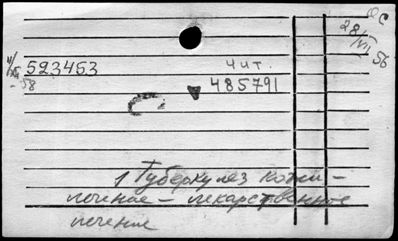 ОС
28/VII 56
чит.
523453
485791
58
1 Туберкулез кожи –
– лекарственное
лечение